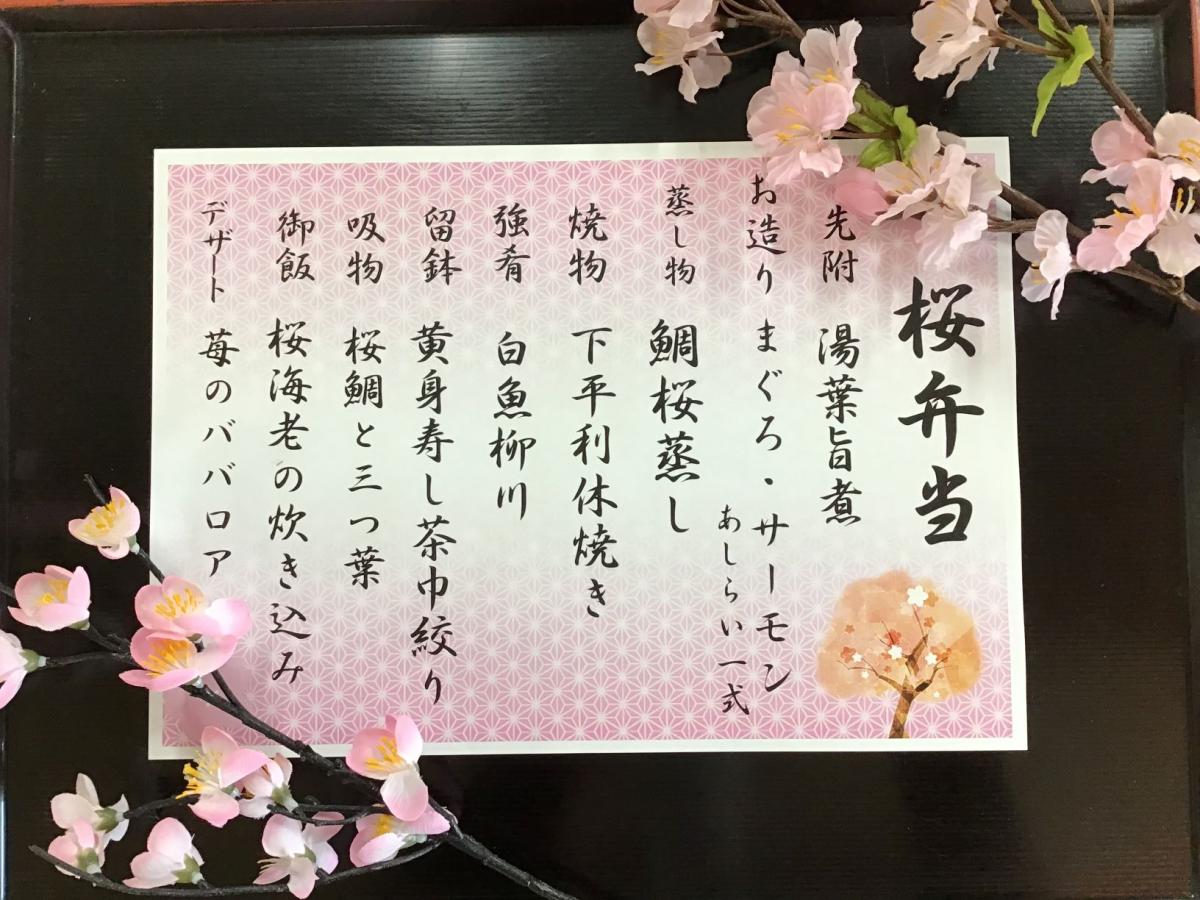 桜弁当
先附 湯葉旨煮
お造り まぐろ・サーモン
あしらい一式
蒸し物 鯛桜蒸し
焼物 下平利休焼き
強肴 白魚柳川
留鉢 黄身寿し茶巾絞り
吸物 桜鯛と三つ葉
御飯 桜海老の炊き込み
デザート 苺のババロア